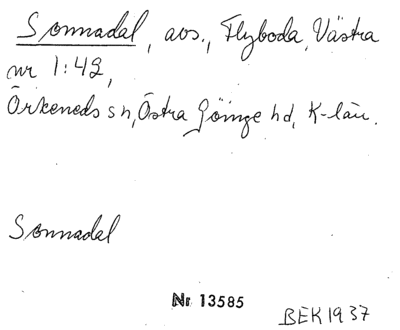 Sonnadal, avs., Flyboda, Västra
nr 1:42,
Örkeneds sn, Östra Göinge hd, K-län.
Sonnadal
Nr 13585
BEK 1937